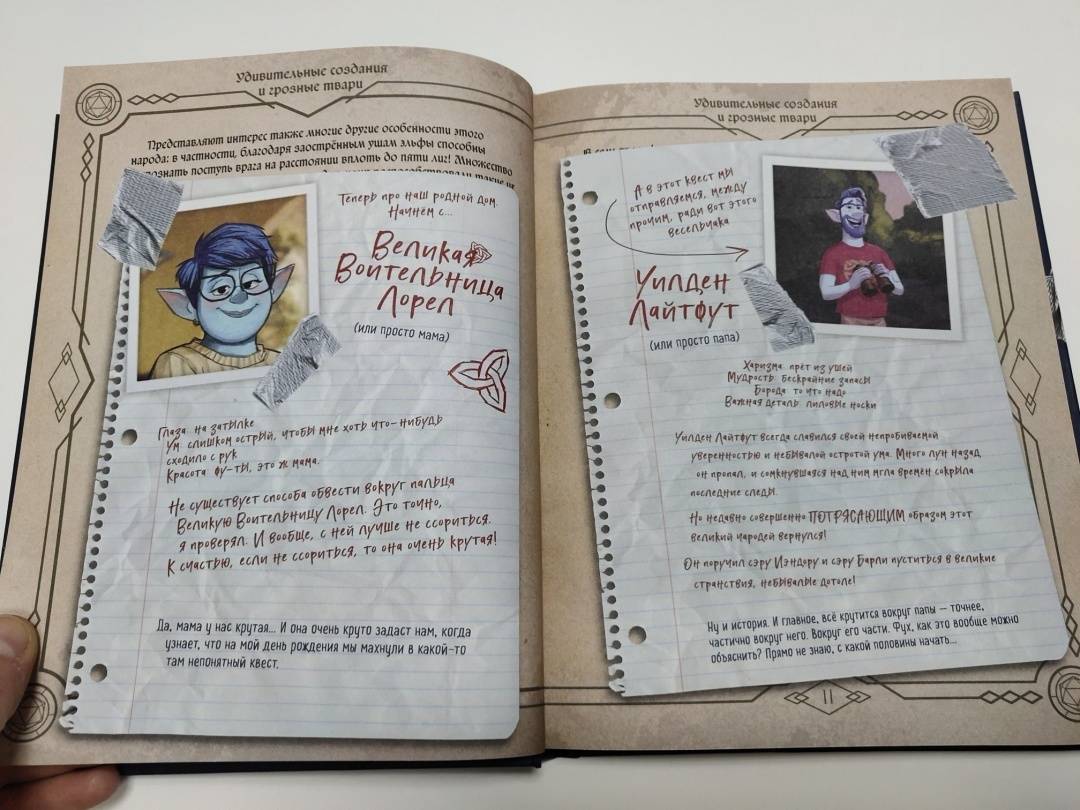 Удивительные создания
и грозные твари
Представляют интерес также многие другие особенности этого
народа: в частности, благодаря заострённым ушам эльфы способны
познать поступь врага на расстоянии вплоть до пяти лиг! Множество
Теперь про наш родной дом.
Начнём с...
Великая
Воительница
Лорел
(или просто мама)
Глаза: на затылке
Ум: слишком острый, чтобы мне хоть что-нибудь
сходило с рук
Красота: фу-ты, это ж мама.
Не существует способа обвести вокруг пальца
Великую Воительницу Лорел. Это точно,
я проверял. И вообще, с ней лучше не ссориться.
К счастью, если не ссориться, то она очень крутая!
Да, мама у нас крутая... И она очень круто задаст нам, когда
узнает, что на мой день рождения мы махнули в какой-то
там непонятный квест.
Удивительные создания
и грозные твари
А в этот квест мы
отправляемся, между
прочим, ради вот этого
весельчака
Уилден
Лайтфут
(или просто папа)
Харизма: прёт из ушей
Мудрость: бескрайние запасы
Борода: то что надо
Важная деталь: лиловые носки
Уилден Лайтфут всегда славился своей непробиваемой
уверенностью и небывалой остротой ума. Много лун назад
он пропал, и сомкнувшаяся над ним мгла времён сокрыла
последние следы.
Но недавно совершенно ПОТРЯСАЮЩИМ образом этот
великий чародей вернулся!
Он поручил сэру Иэндору и сэру Барли пуститься в великие
странствия, небывалые дотоле!
Ну и история. И главное, всё крутится вокруг папы — точнее,
частично вокруг него. Вокруг его части. Фух, как это вообще можно
объяснить? Прямо не знаю, с какой половины начать...
11